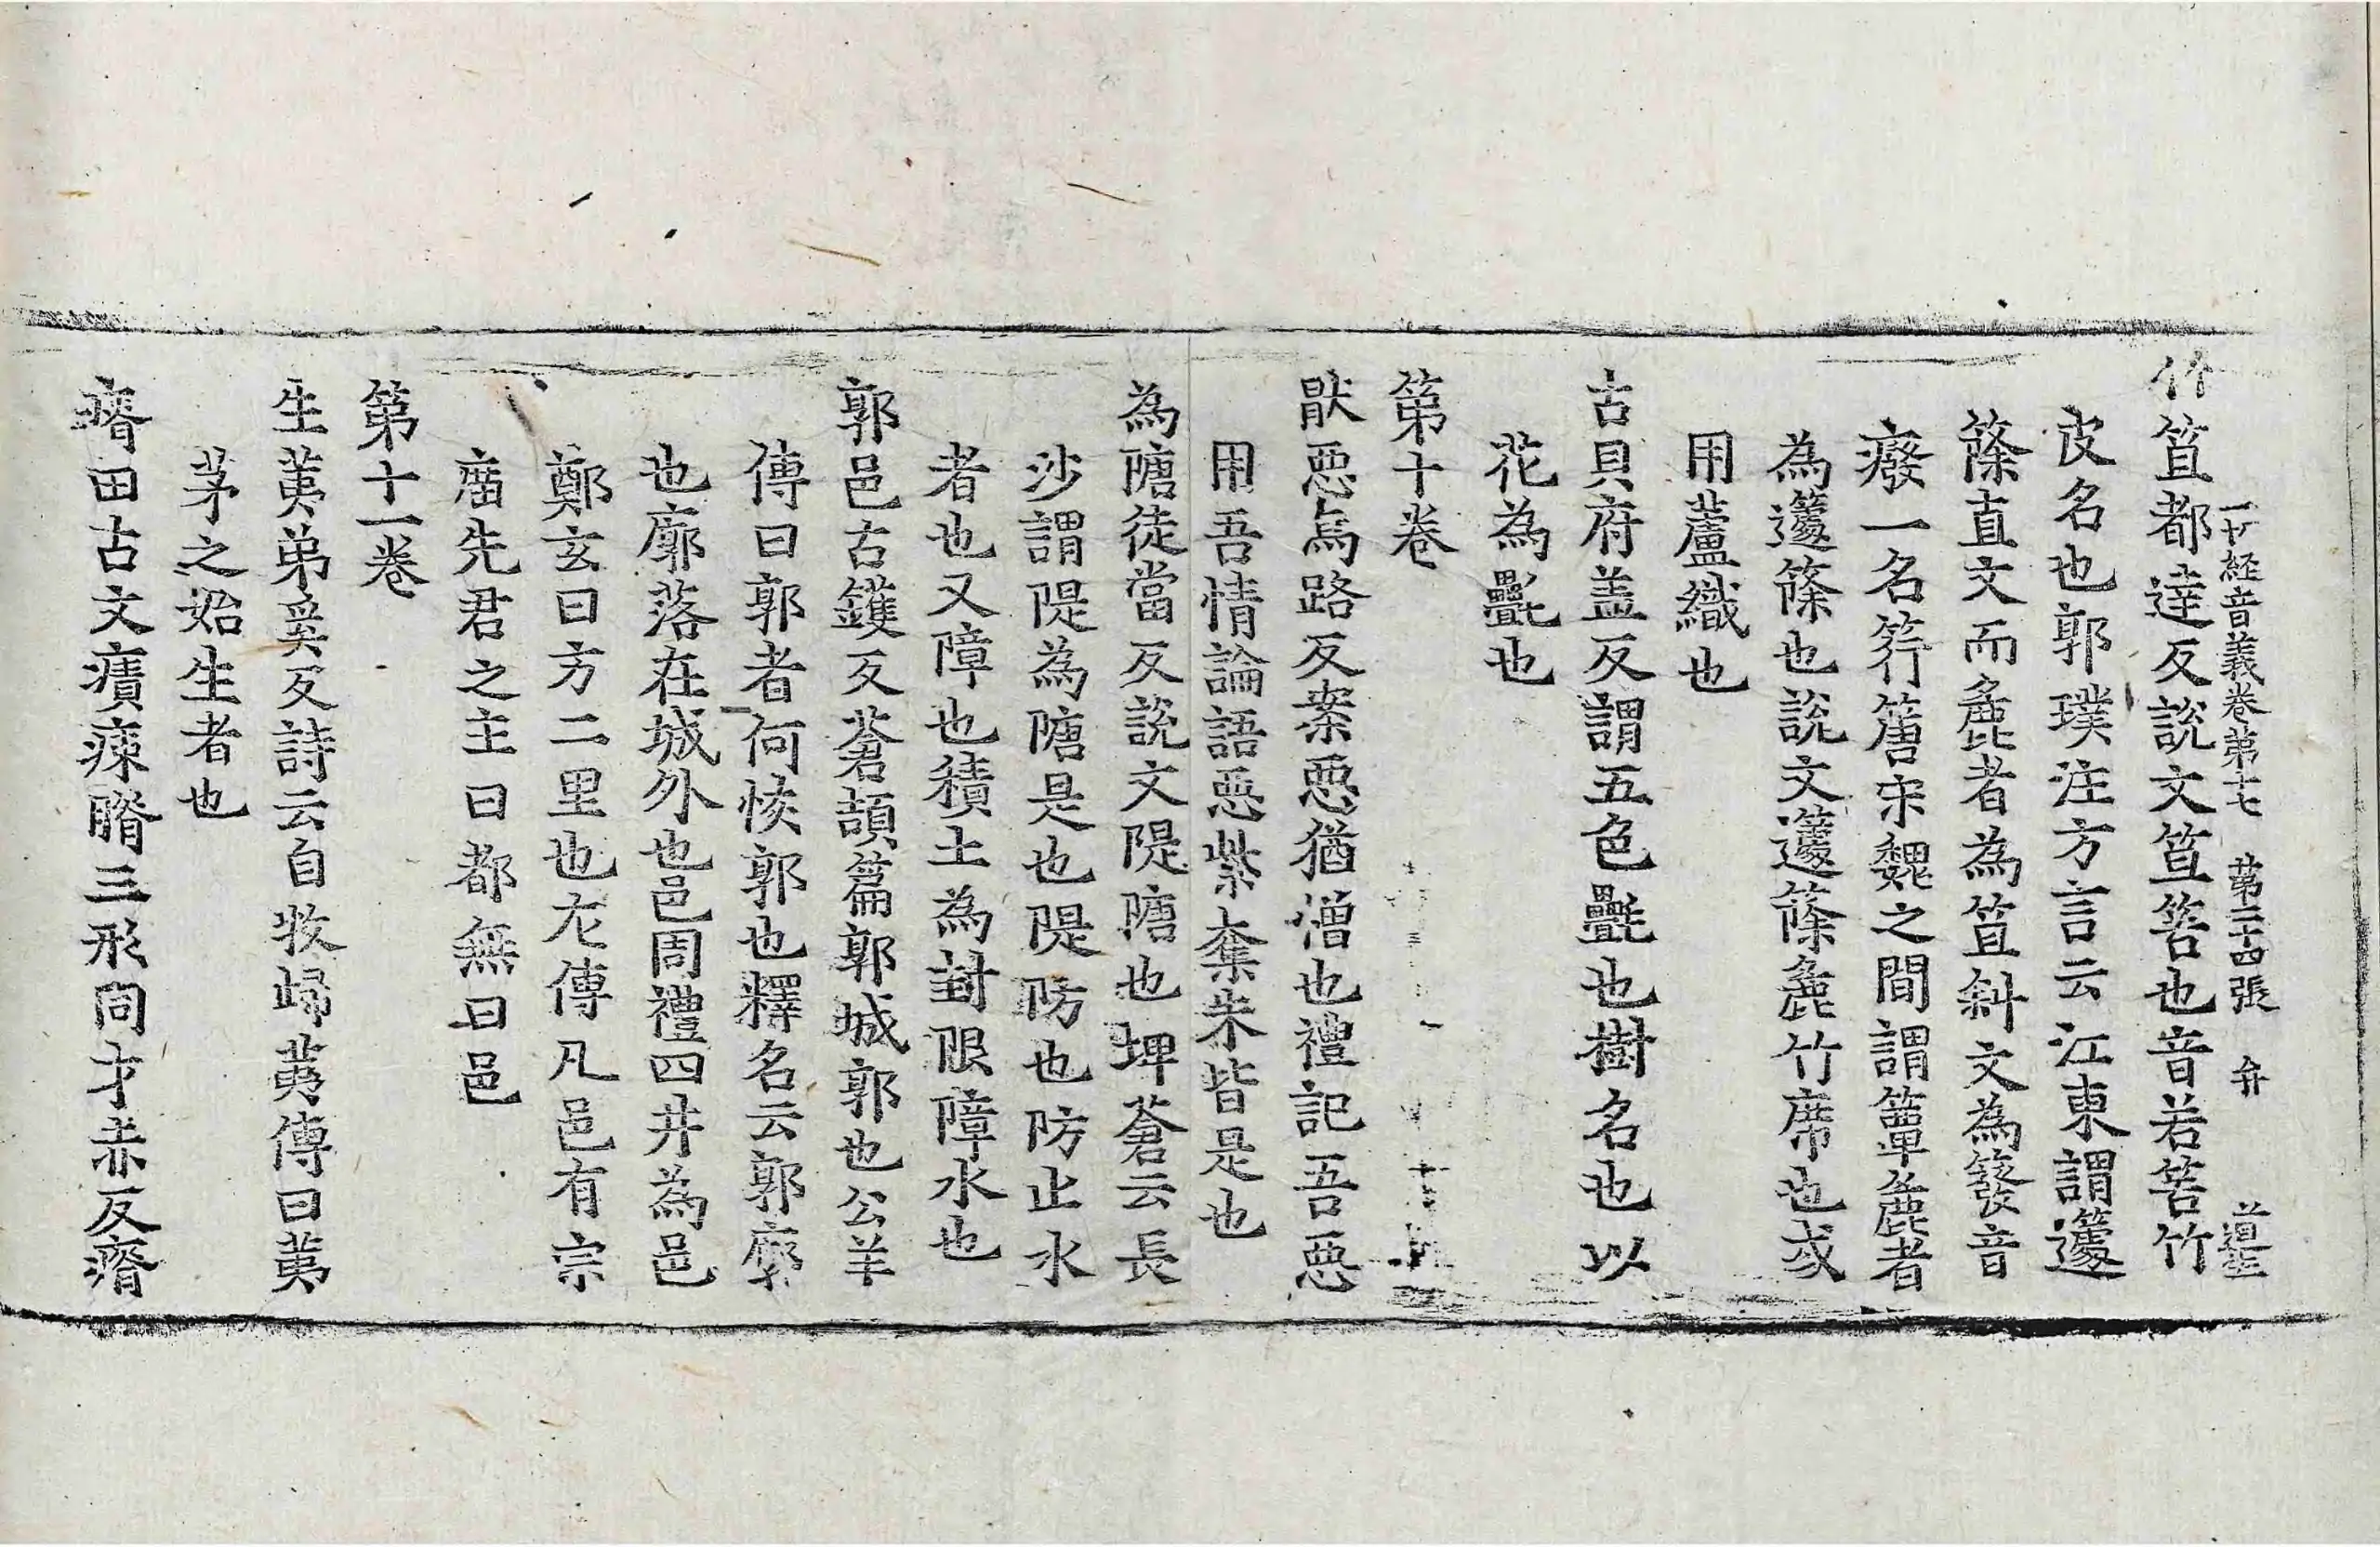 一切経音義卷苐十七　苐二十四張　弁
竹笪都達反説文笪笞也音若笞竹
皮名也郭璞注方言云江東謂籧
篨直文而麁者為笪斜文為簽音
癈一名筕篖宋魏之間謂簞麁者
為籧篨也説文籧篨麁竹席也或
用蘆織也
古貝府盖反謂五色㲲也樹名也以
花為㲲也
苐十卷
猒惡烏路反案惡猶憎也禮記吾惡
用吾情論語惡紫奪朱皆是也
為隚徒當反説文隄隚也埤蒼云長
沙謂隄為隚是也隄防也防止水
者也又障也積土為封限障水也
郭邑古鑊反蒼頡篇郭城郭也公羊
傳曰郭者何恢郭也釋名云郭廓
也廓落在城外也邑周禮四井為邑
鄭玄曰方二里也尢傳凡邑有宗
庿先君之主曰都無曰邑
苐十一卷
生荑弟奚反詩云自牧歸荑傳曰荑
茅之始生者也
瘠田古文㾊𤷃膌三形同才赤反瘠